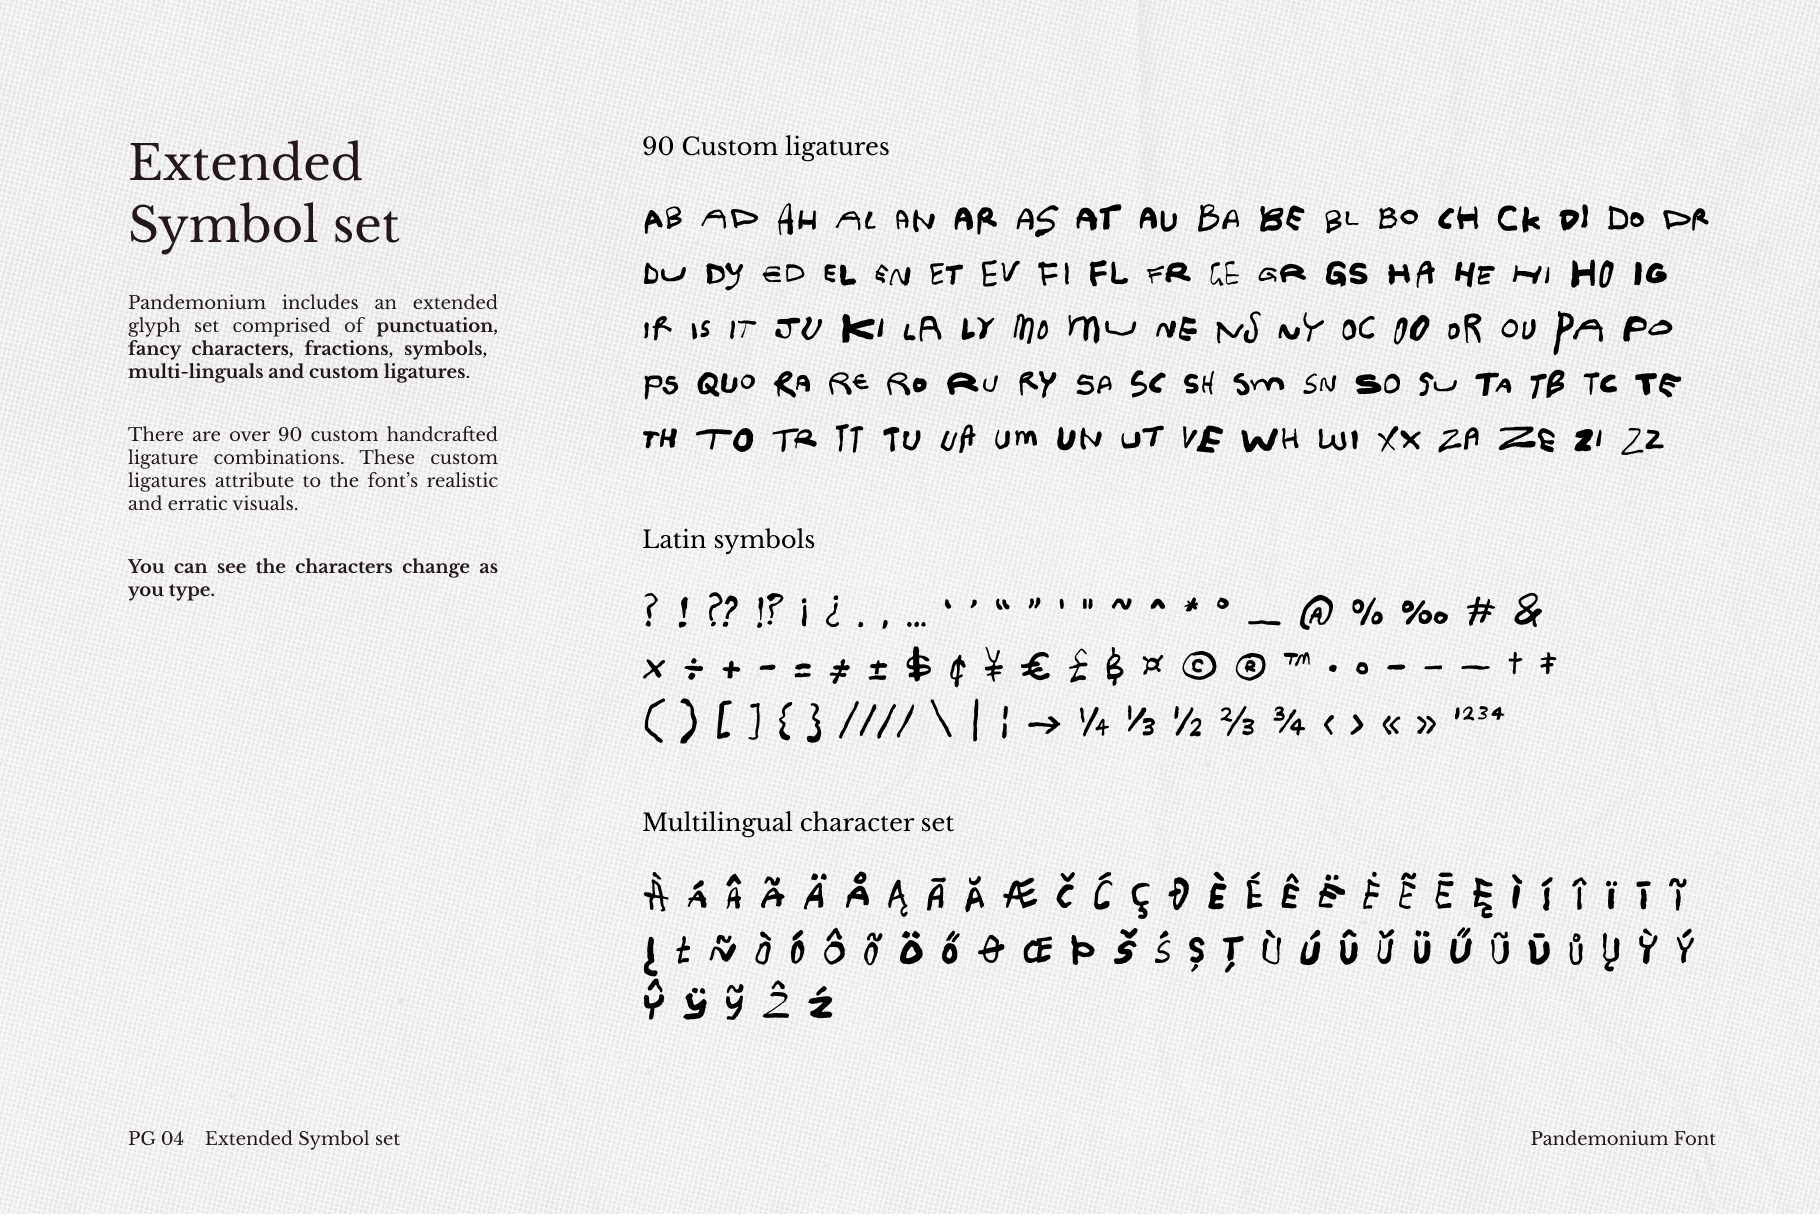 Extended
Symbol set
Pandemonium includes an extended
glyph set comprised of punctuation,
fancy characters, fractions, symbols,
multi-linguals and custom ligatures.
There are over 90 custom handcrafted
ligature combinations. These custom
ligatures attribute to the font's realistic
and erratic visuals.
You can see the characters change as
you type.
90 Custom ligatures
AB AD AH AL AN AR AS AT AU BA BE BL BO CH Ck DI Do DR
DU DY ED EL EN ET EV FI FL FR GE GR GS HA HE HI HO IG
IR IS IT JU KI LA LY MO MU NE NS NY OC OO OR OU PA PO
PS QUO RA RE RO RU RY SA SC SH Sm SN SO SU TA TB TC TE
TH TO TR TT TU UA Um UN UT VE WH WI XX ZA ZE ZI ZZ
Latin symbols
? ! ?? !? ¡ ¿ . , … ‘ ’ “ ” ' " ~ ^ * ° _ @ % ‰ # &
× ÷ + − = ≠ ± $ ¢ ¥ € £ ฿ ¤ © ® ™ • ∘ - – — † ‡
( ) [ ] { } //// \ | ¦ → ¼ ⅓ ½ ⅔ ¾ ‹ › « » ¹²³⁴
Multilingual character set
À Á Â Ã Ä Å Ą Ā Ă Æ Č Ć Ç Đ È É Ê Ë Ė Ẽ Ē Ę Ì Í Î Ï Ī Ĩ
Į Ł Ñ Ò Ó Ô Õ Ö Ő Ø Œ Þ Š Ś Ș Ț Ù Ú Û Ŭ Ü Ű Ũ Ū Ů Ų Ỳ Ý
Ŷ Ÿ Ỹ Ẑ Ź
PG 04 Extended Symbol set
Pandemonium Font